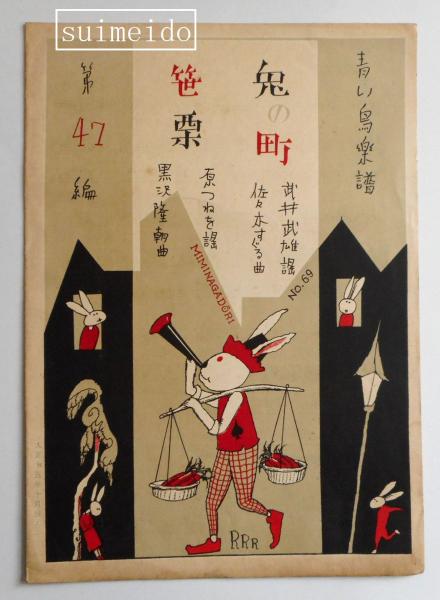 suimeido
青い鳥楽譜
兎の町
武井武雄謡
佐々木すぐる曲
No.69
笹栗
原つねを謡
黒沢隆朝曲
MIMINAGADŌRI
第47編
RRR